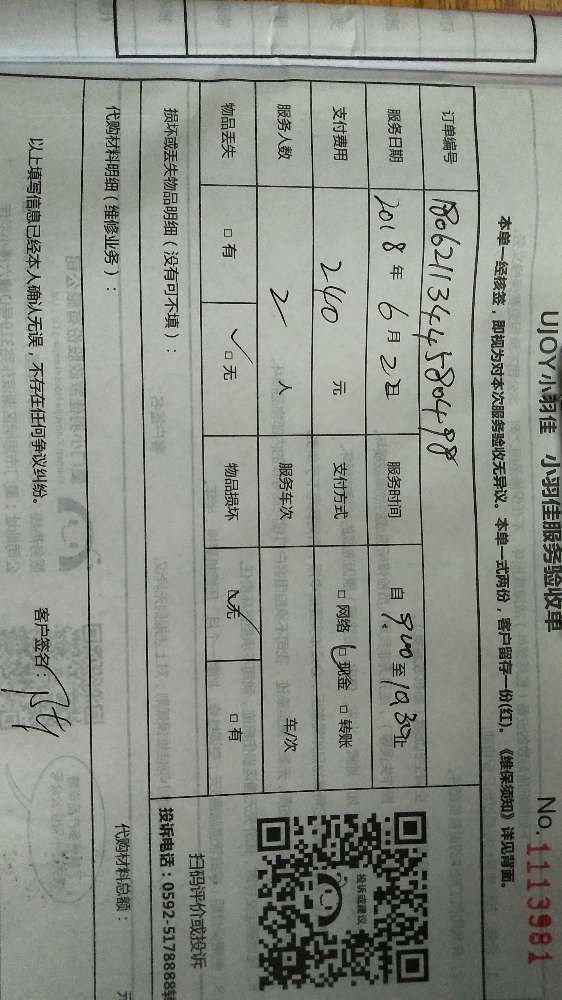 UJOY小羽佳 小羽佳服务验收单
No.1113981
本单一经核签，即视为对本次服务验收无异议。本单一式两份，客户留存一份(红)。《维保须知》详见背面。
订单编号 1806211344580498
服务日期 2018年6月2日 服务时间 自9:00至10:30止
支付费用 240元 支付方式 □网络 ☑现金 □转账
服务人数 2人 服务车次 车/次
物品丢失 □有 ☑无 物品损坏 ☑无 □有
损坏或丢失物品明细（没有可不填）：
投诉或建议
扫码评价或投诉
投诉电话：0592-5178888转
代购材料明细（维修业务）：
代购材料总额： 元
以上填写信息已经本人确认无误，不存在任何争议纠纷。
客户签名：